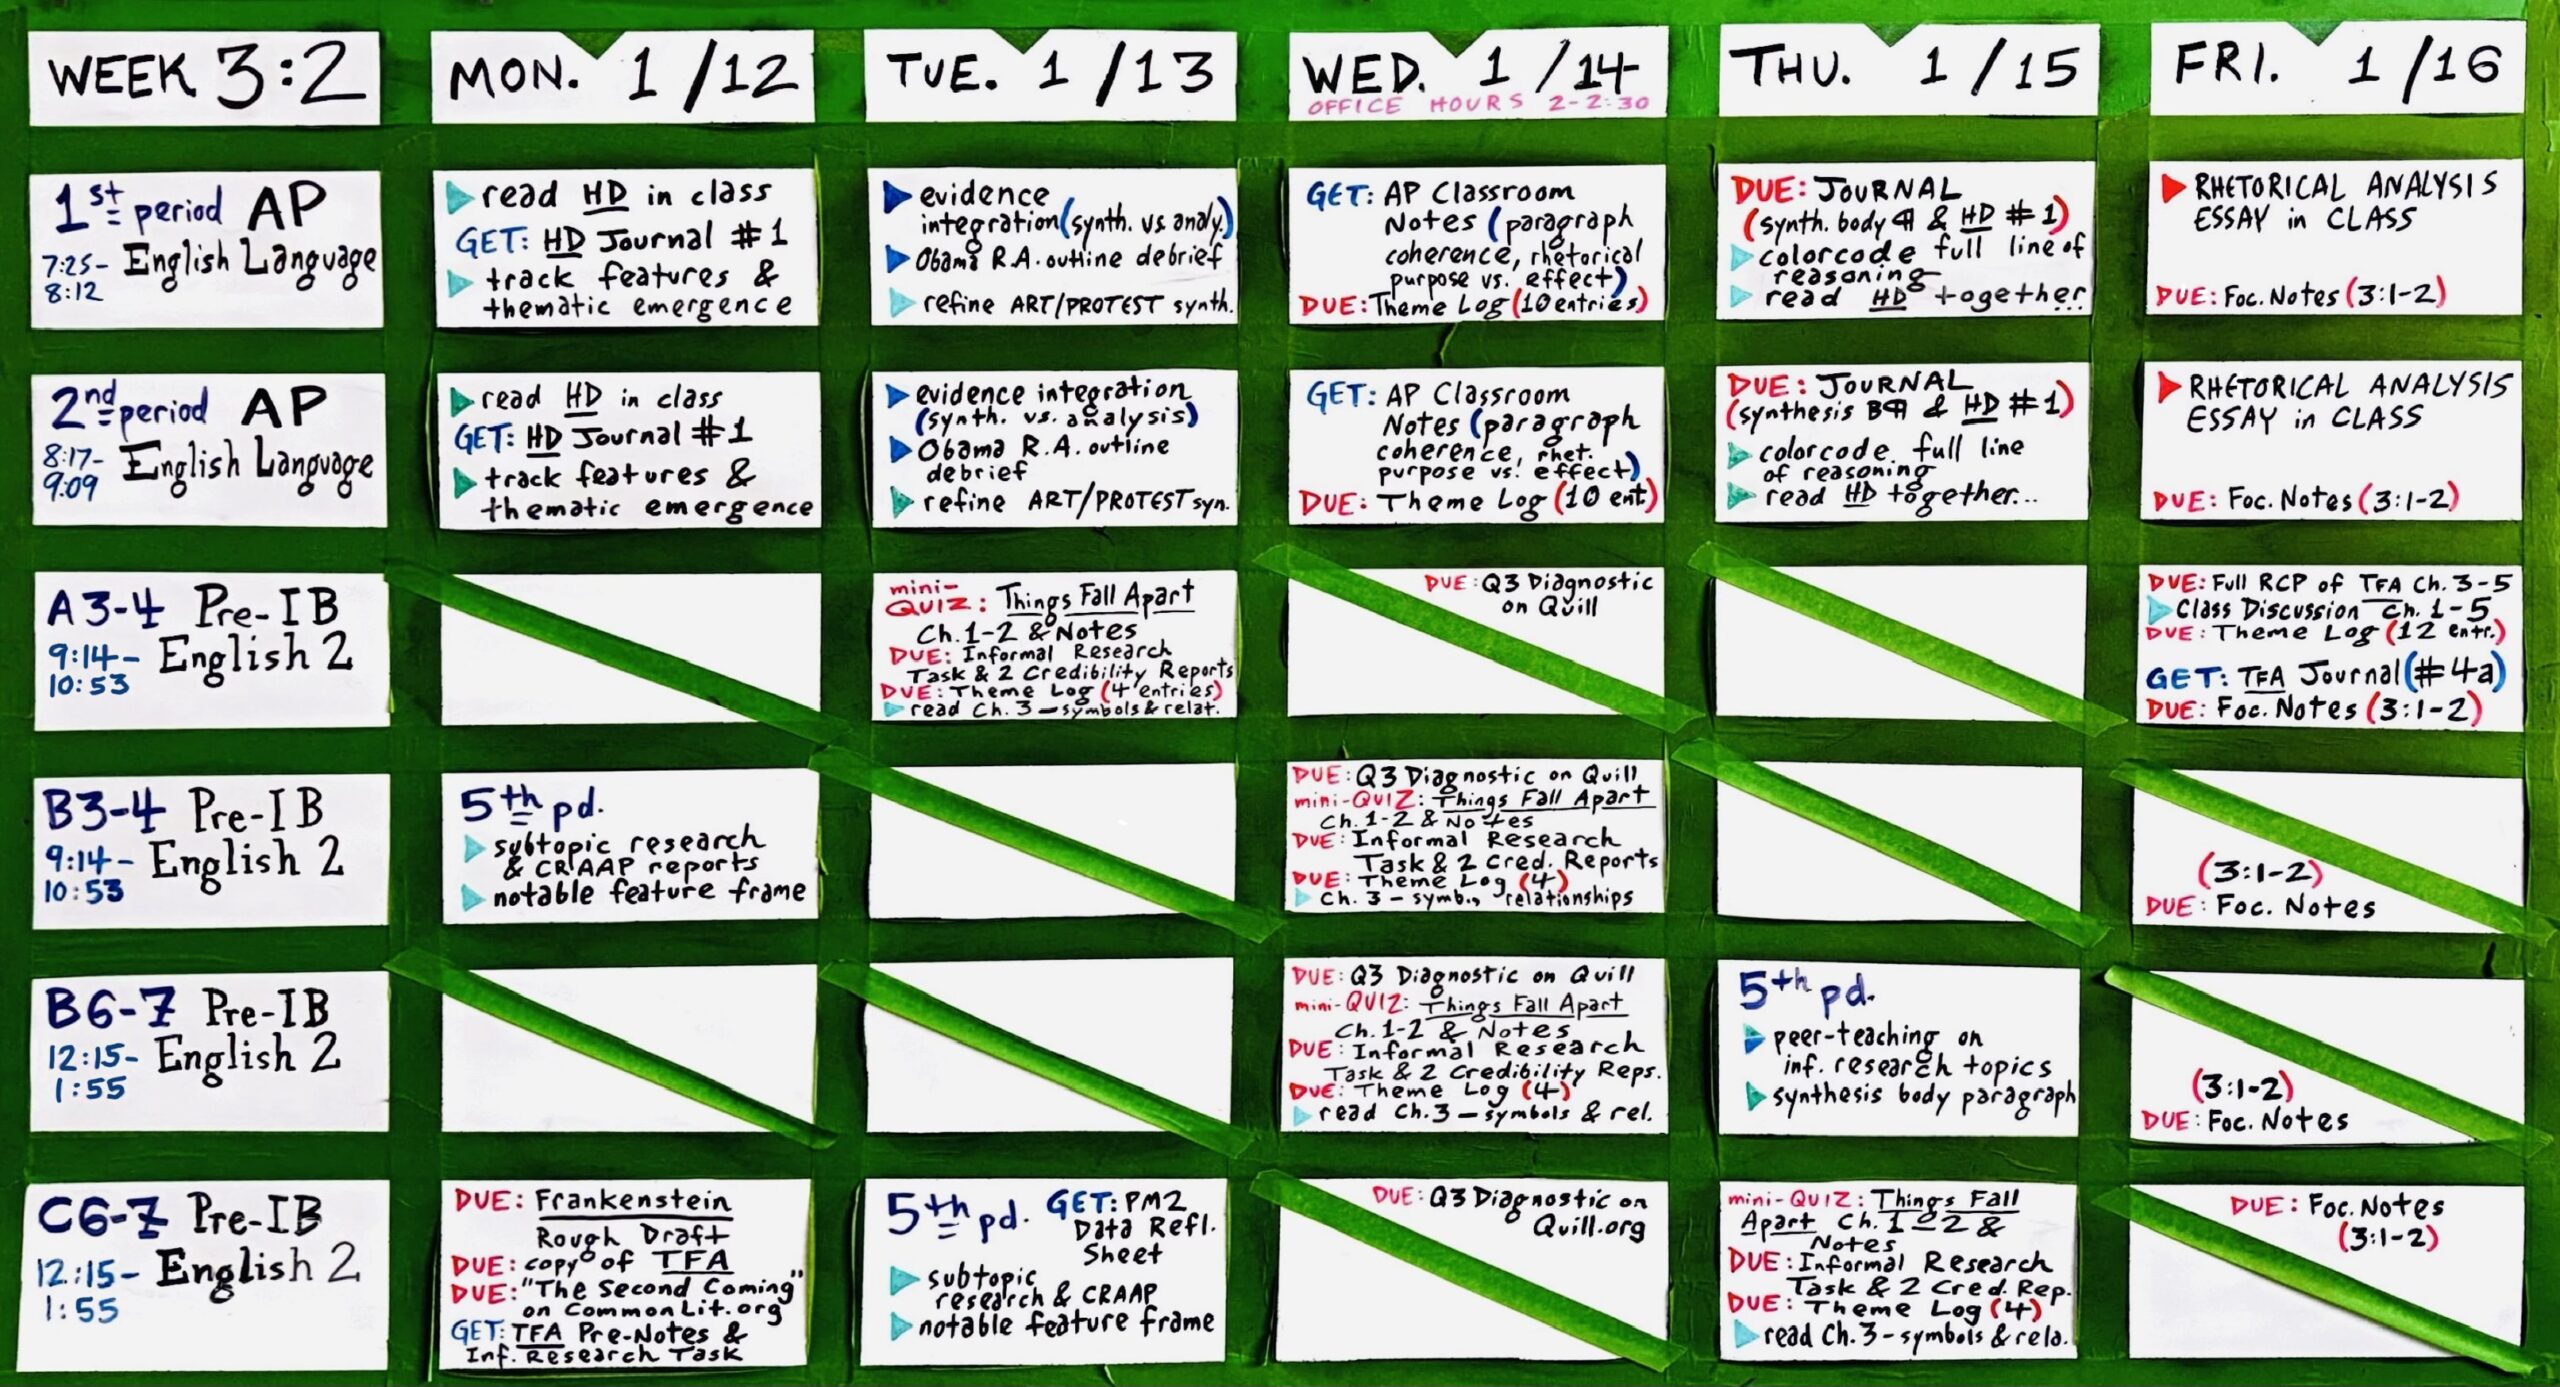 WEEK 3:2
MON. 1/12
TUE. 1/13
WED. 1/14
OFFICE HOURS 2-2:30
THU. 1/15
FRI. 1/16
1st period AP
English Language
7:25-
8:12
▶ read HD in class
GET: HD Journal #1
▶ track features &
thematic emergence
▶ evidence
integration (synth. vs. analy.)
▶ Obama R.A. outline debrief
▶ refine ART/PROTEST synth.
GET: AP Classroom
Notes (paragraph
coherence, rhetorical
purpose vs. effect)
DUE: Theme Log (10 entries)
DUE: JOURNAL
(synth. body ¶ & HD #1)
▶ colorcode full line of
reasoning
▶ read HD together...
▶ RHETORICAL ANALYSIS
ESSAY in CLASS
DUE: Foc. Notes (3:1-2)
2nd period AP
English Language
8:17-
9:09
▶ read HD in class
GET: HD Journal #1
▶ track features &
thematic emergence
▶ evidence integration
(synth. vs. analysis)
▶ Obama R.A. outline
debrief
▶ refine ART/PROTEST syn.
GET: AP Classroom
Notes (paragraph
coherence, rhet.
purpose vs. effect)
DUE: Theme Log (10 ent.)
DUE: JOURNAL
(synthesis B¶ & HD #1)
▶ colorcode full line
of reasoning
▶ read HD together...
▶ RHETORICAL ANALYSIS
ESSAY in CLASS
DUE: Foc. Notes (3:1-2)
A3-4 Pre-IB
English 2
9:14-
10:53
mini-
QUIZ: Things Fall Apart
Ch. 1-2 & Notes
DUE: Informal Research
Task & 2 Credibility Reports
DUE: Theme Log (4 entries)
▶ read Ch. 3 - symbols & relat.
DUE: Q3 Diagnostic
on Quill
DUE: Full RCP of TFA Ch. 3-5
▶ Class Discussion Ch. 1-5
DUE: Theme Log (12 entr.)
GET: TFA Journal (#4a)
DUE: Foc. Notes (3:1-2)
B3-4 Pre-IB
English 2
9:14-
10:53
5th pd.
▶ subtopic research
& CRAAP reports
▶ notable feature frame
DUE: Q3 Diagnostic on Quill
mini-QUIZ: Things Fall Apart
Ch. 1-2 & Notes
DUE: Informal Research
Task & 2 Cred. Reports
DUE: Theme Log (4)
▶ Ch. 3 - symb., relationships
(3:1-2)
DUE: Foc. Notes
B6-7 Pre-IB
English 2
12:15-
1:55
DUE: Q3 Diagnostic on Quill
mini-QUIZ: Things Fall Apart
Ch. 1-2 & Notes
DUE: Informal Research
Task & 2 Credibility Reps.
DUE: Theme Log (4)
▶ read Ch. 3 - symbols & rel.
5th pd.
▶ peer-teaching on
inf. research topics
▶ synthesis body paragraph
(3:1-2)
DUE: Foc. Notes
C6-7 Pre-IB
English 2
12:15-
1:55
DUE: Frankenstein
Rough Draft
DUE: copy of TFA
DUE: "The Second Coming"
on CommonLit.org
GET: TFA Pre-Notes &
Inf. Research Task
5th pd. GET: PM2
Data Refl.
Sheet
▶ subtopic
research & CRAAP
▶ notable feature frame
DUE: Q3 Diagnostic on
Quill.org
mini-QUIZ: Things Fall
Apart Ch. 1-2 &
Notes
DUE: Informal Research
Task & 2 Cred. Rep.
DUE: Theme Log (4)
▶ read Ch. 3 - symbols & rela.
DUE: Foc. Notes
(3:1-2)